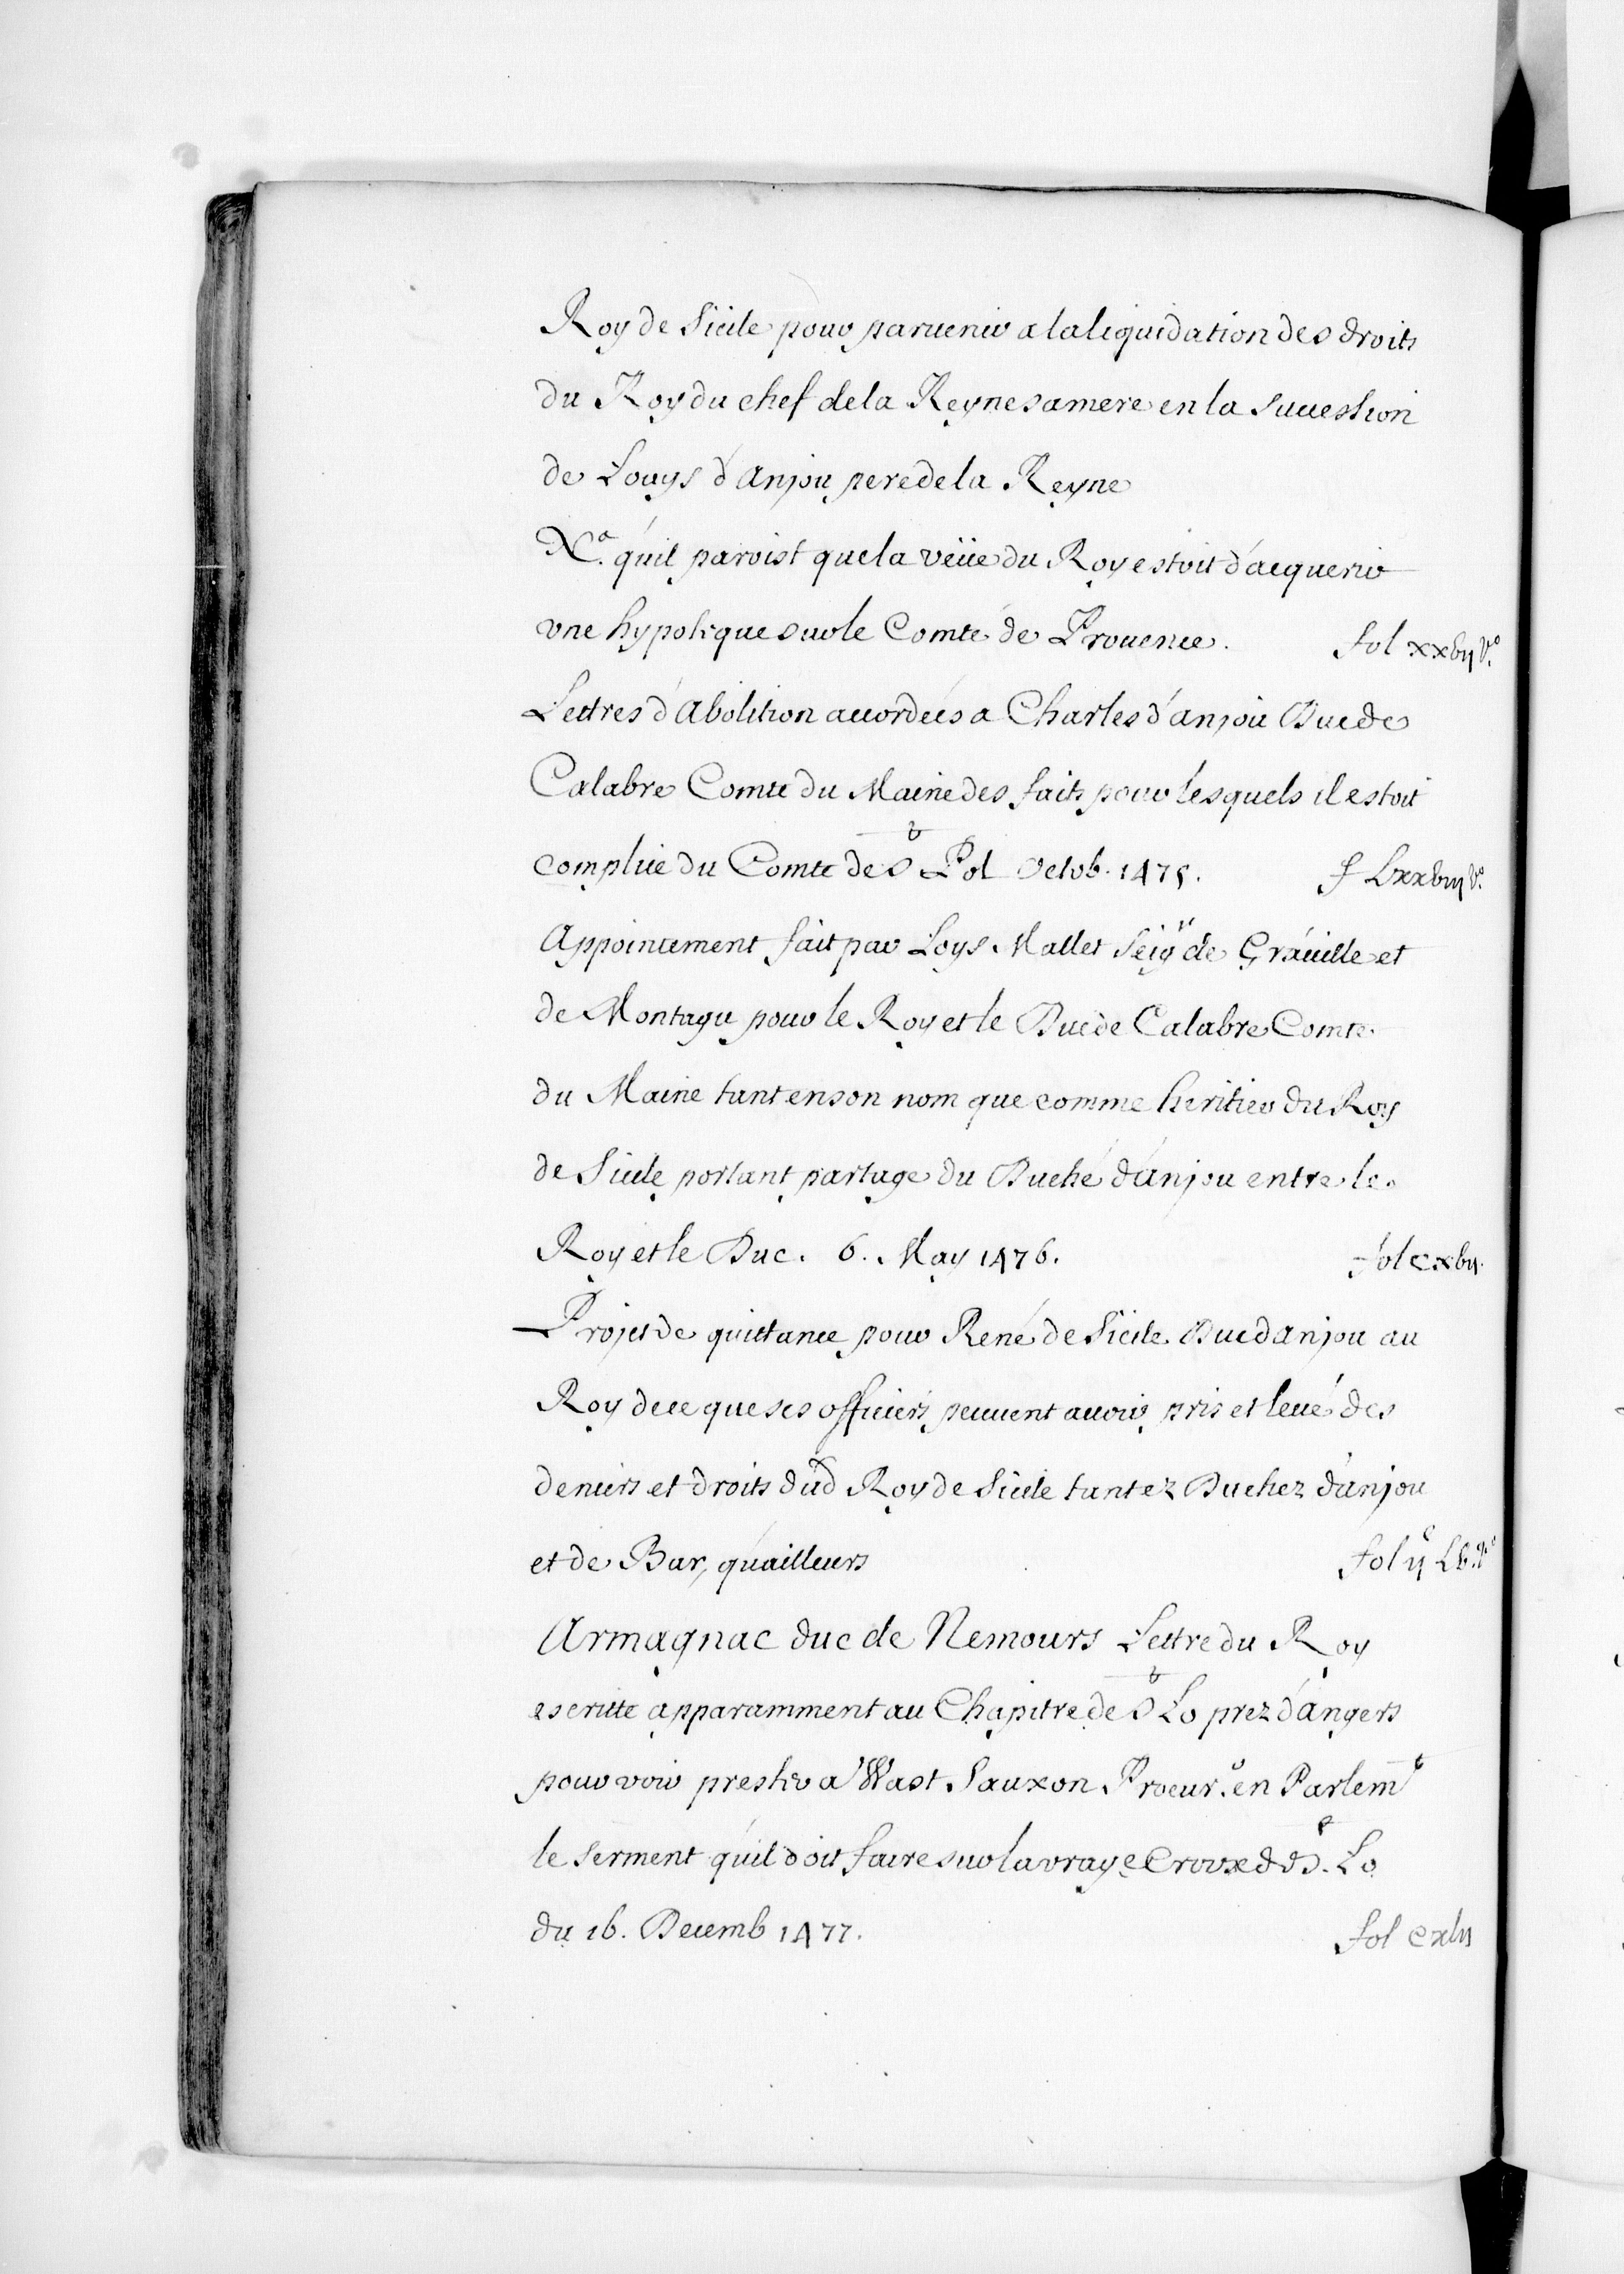 Roy de Sicile pour paruenir a la liquidation des droits
du Roy du chef de la Reyne sa mere en la succession
de Louys d'Anjou pere de la Reyne
Na. qu'il paroist que la veüe du Roy estoit d'acquerir
vne hypoteque sur le Comté de Prouence. fol xxbij vo.
Lettres d'Abolition accordées a Charles d'anjou Duc de
Calabre Comte du Maine des faits pour lesquels il estoit
complice du Comte de St Pol Octob. 1475. f Lxxbiij vo.
Appointement fait par Loys Mallet Seigr de Grauille et
de Montagu pour le Roy et le Duc de Calabre Comte
du Maine tant en son nom que comme heritier du Roy
de Sicile portant partage du Duché d'anjou entre le
Roy et le Duc. 6. May 1476. fol cxbij.
Projet de quittance pour René de Sicile Duc d'anjou au
Roy de ce que ses officiers peuuent auoir pris et leué des
deniers et droits dud Roy de Sicile tant ez Duchez d'anjou
et de Bar, qu'ailleurs fol ijc Lb. vo
Armagnac duc de Nemours Lettre du Roy
escritte apparamment au Chapitre de St Lo prez d'angers
pour voir prester a Wast Sauxon Procur. en Parlemt
le serment qu'il doit faire sur la vraye Croix de St. Lo
du 16. Decemb 1477. fol cxlij